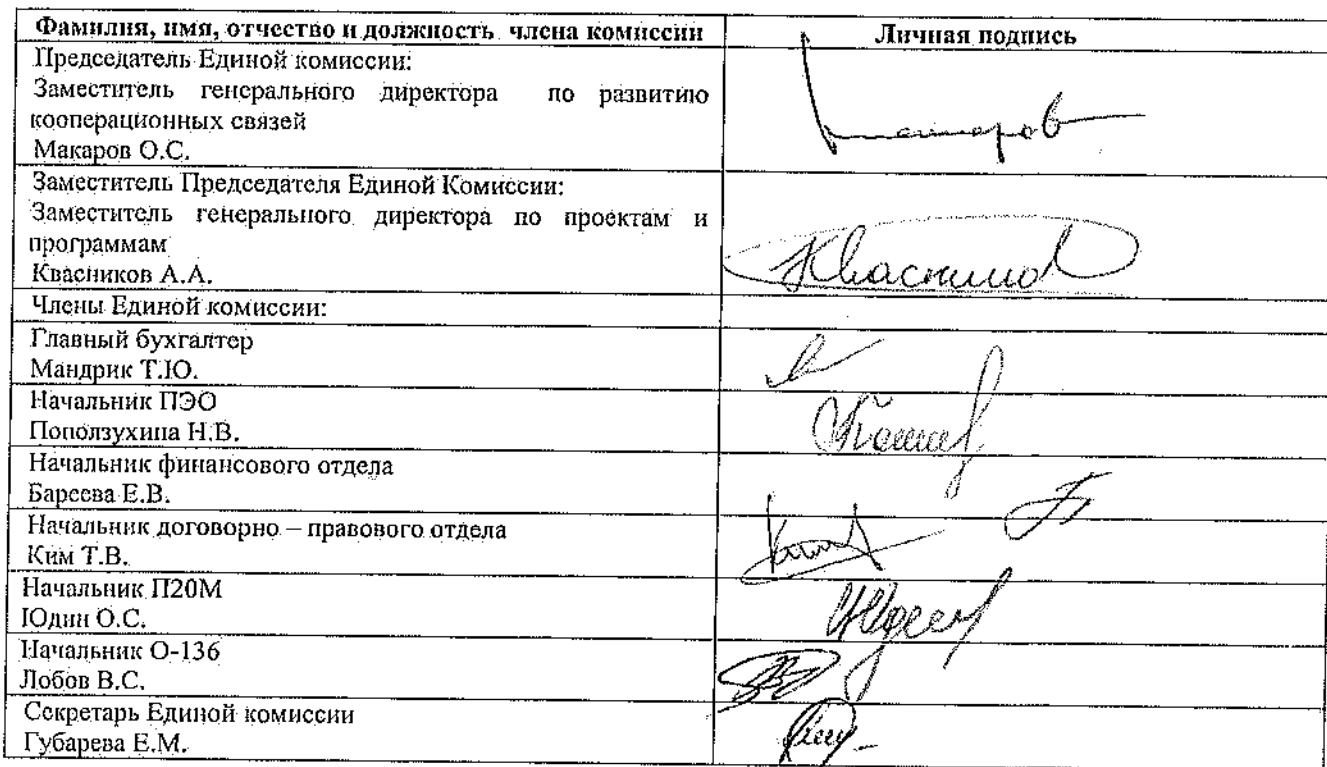 Фамилия, имя, отчество и должность члена комиссии
Личная подпись
Председатель Единой комиссии:
Заместитель генерального директора по развитию
кооперационных связей
Макаров О.С.
Заместитель Председателя Единой Комиссии:
Заместитель генерального директора по проектам и
программам
Квасников А.А.
Члены Единой комиссии:
Главный бухгалтер
Мандрик Т.Ю.
Начальник ПЭО
Поползухина Н.В.
Начальник финансового отдела
Бареева Е.В.
Начальник договорно – правового отдела
Ким Т.В.
Начальник П20М
Юдин О.С.
Начальник О-136
Лобов В.С.
Секретарь Единой комиссии
Губарева Е.М.